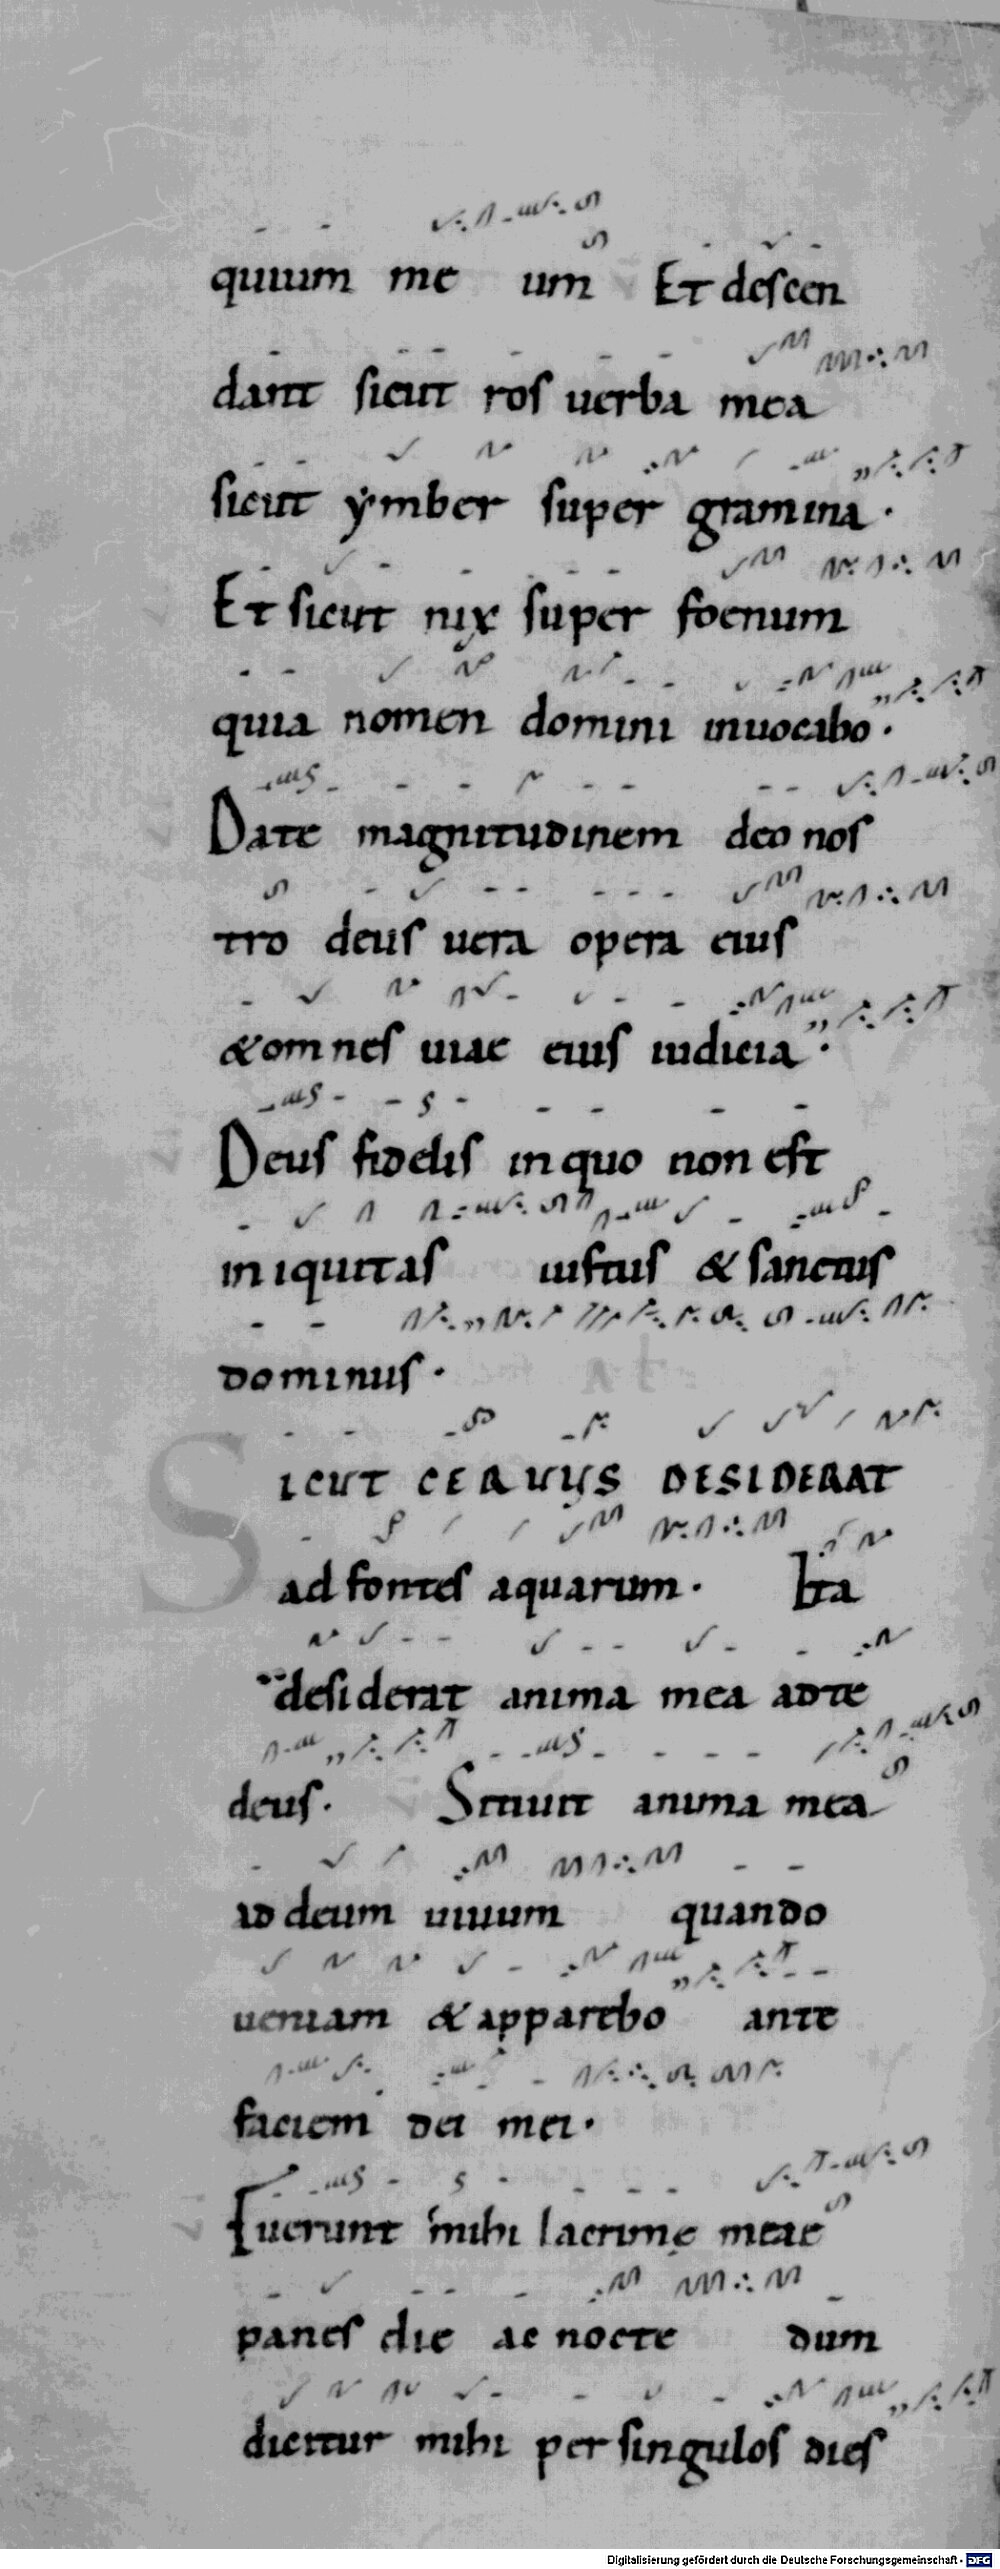 quium me um Et descen
dant sicut ros uerba mea
sicut ymber super gramina ·
Et sicut nix super foenum
quia nomen domini inuocabo ·
Date magnitudinem deo nos
tro deus uera opera eius
& omnes uiae eius iudicia ·
Deus fidelis in quo non est
iniquitas iustus & sanctus
dominus ·
SICUT CERUUS DESIDERAT
ad fontes aquarum · Ita
desiderat anima mea ad te
deus · Sitiuit anima mea
ad deum uiuum quando
ueniam & apparebo ante
faciem dei mei ·
Fuerunt mihi lacrimę meae
panes die ac nocte dum
dicitur mihi per singulos dies
Digitalisierung gefördert durch die Deutsche Forschungsgemeinschaft - DFG